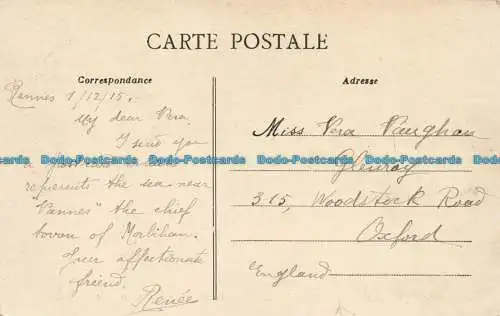 CARTE POSTALE
Correspondance
Rennes 1/12/15.
My dear Vera,
I send you
a
represents the sea near
Vannes" the chief
town of Morbihan.
Your affectionate
friend.
Renée
Adresse
Miss Vera Vaughan
Glenroy
315, Woodstock Road
Oxford
England
Dodo-Postcards Dodo-Postcards Dodo-Postcards Dodo-Postcards